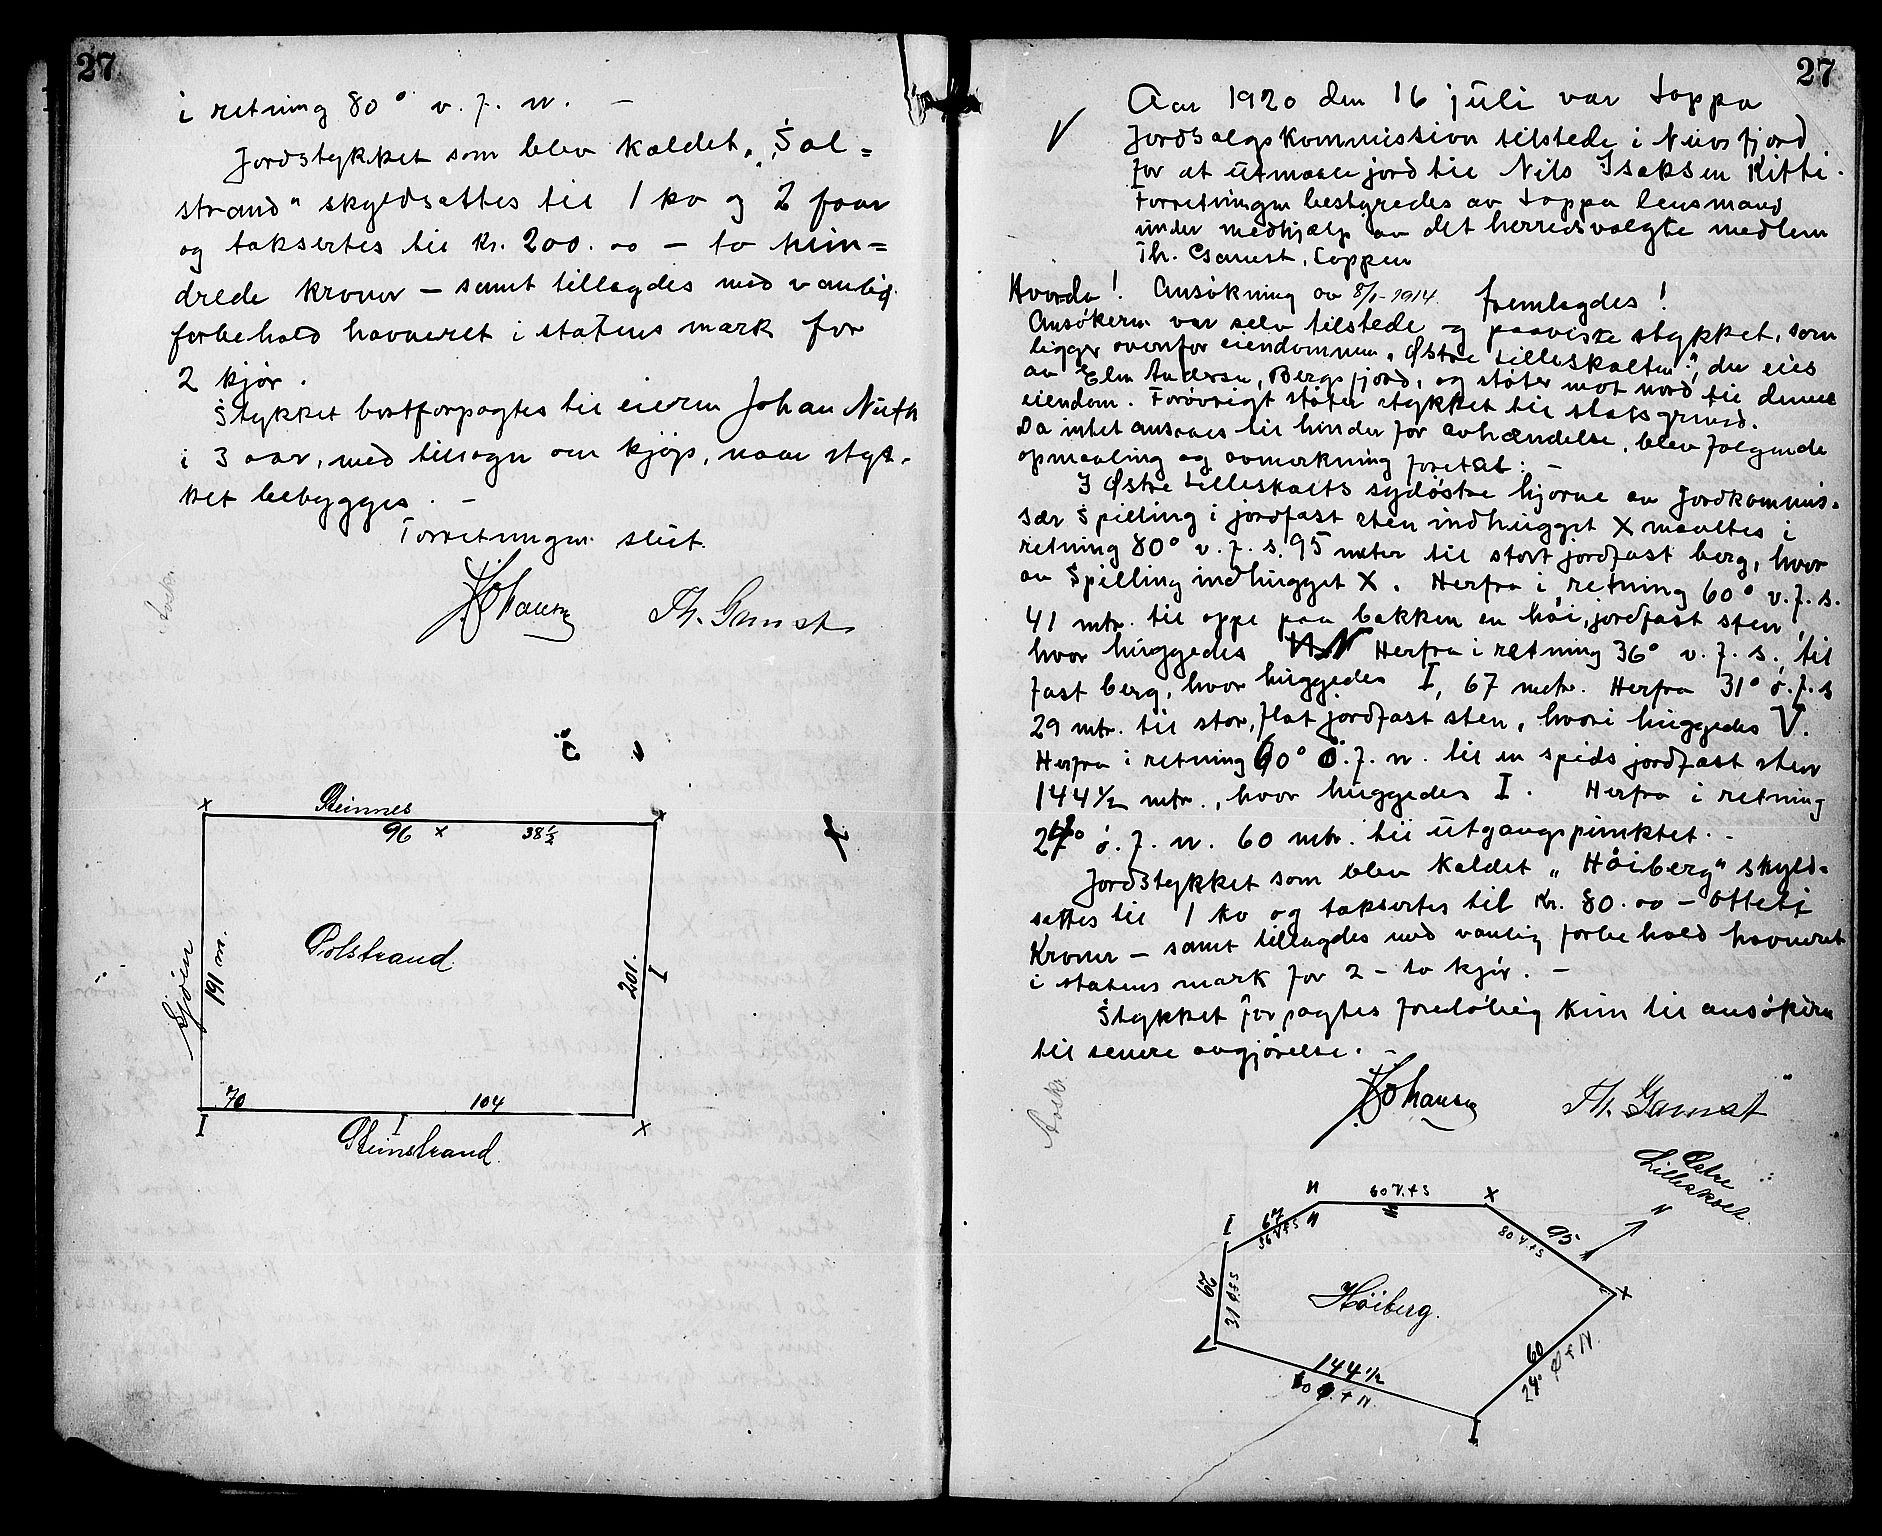 27
i retning 80° v. f. n. —
Jordstykket som blev kaldet „Sol=
strand" skyldsattes til 1 ko og 2 faar
og taksertes til kr. 200.00 — to hun=
drede kroner — samt tillagdes med vanlig
forbehold havneret i statens mark for
2 kjør.
Stykket bortforpagtes til eieren Johan
i 3 aar, med tilsagn om kjøp, naar styk-
ket bebygges. —
Forretningen slut.
Johansen Th. Gamst
Avskr.
Steinnes
x 96 x 38½ x
Sjøen
191 m.
Solstrand
201.
I
70 104
I I x
Steinstrand
27
Aar 1920 den 16 juli var Loppa
V
Jordsalgskommission tilstede i Nuvsfjord
for at utmaale jord til Nils Isaksen Kitti.
Forretningen bestyredes av Loppa lensmand
under medhjælp av det herredsvalgte medlem
Th. Gamst, Loppen
Hvorda! Ansøkning av 8/1-1914 fremlagdes!
Ansøkeren var selv tilstede og paaviste stykket, som
ligger ovenfor eiendommen „Østre Lilleskalten", der eies
av Elen Andersen, Bergsfjord, og støter mot nord til denne
eiendom. Forøvrigt støter stykket til statsgrund.
Da intet ansaaes til hinder for avhændelse, blev følgende
opmaaling og avmerkning foretat: —
I Østre Lilleskalts sydøstre hjørne av Jordkommis-
sær Spilling i jordfast sten indhugget X maaltes i
retning 80° v. f. s. 95 meter til stort jordfast berg, hvor
av Spilling indhugget X. Herfra i retning 60° v. f. s.
41 mtr. til oppe paa bakken en høi, jordfast sten,
hvor huggedes Herfra i retning 36° v. f. s., til
fast berg, hvor huggedes I, 67 metr. Herfra 31° ø. f. s
29 mtr. til stor, flat jordfast sten, hvori huggedes V.
Herfra i retning 60° Ø. f. n. til en spids jordfast sten
144½ mtr., hvor huggedes I. Herfra i retning
ø. f. n. 60 mtr. til utgangspunktet. —
Jordstykket som blev kaldet „Høiberg" skyld-
sattes til 1 ko og taksertes til kr. 80.00 — otteti
Kroner — samt tillagdes med vanlig forbehold havneret
i statens mark for 2 — to kjør. —
Stykket forpagtes foreløbig kun til ansøkeren
til senere avgjørelse. —
Avskr.
Johansen Th. Gamst
Østre
Lilleskalt.
N
60 V.f.S x
I 67 36 V.f.S
95
80 V.f.S
31 Ø.f.S
Høiberg.
x
V
144½
60 Ø. f N.
60
Ø f N.
I